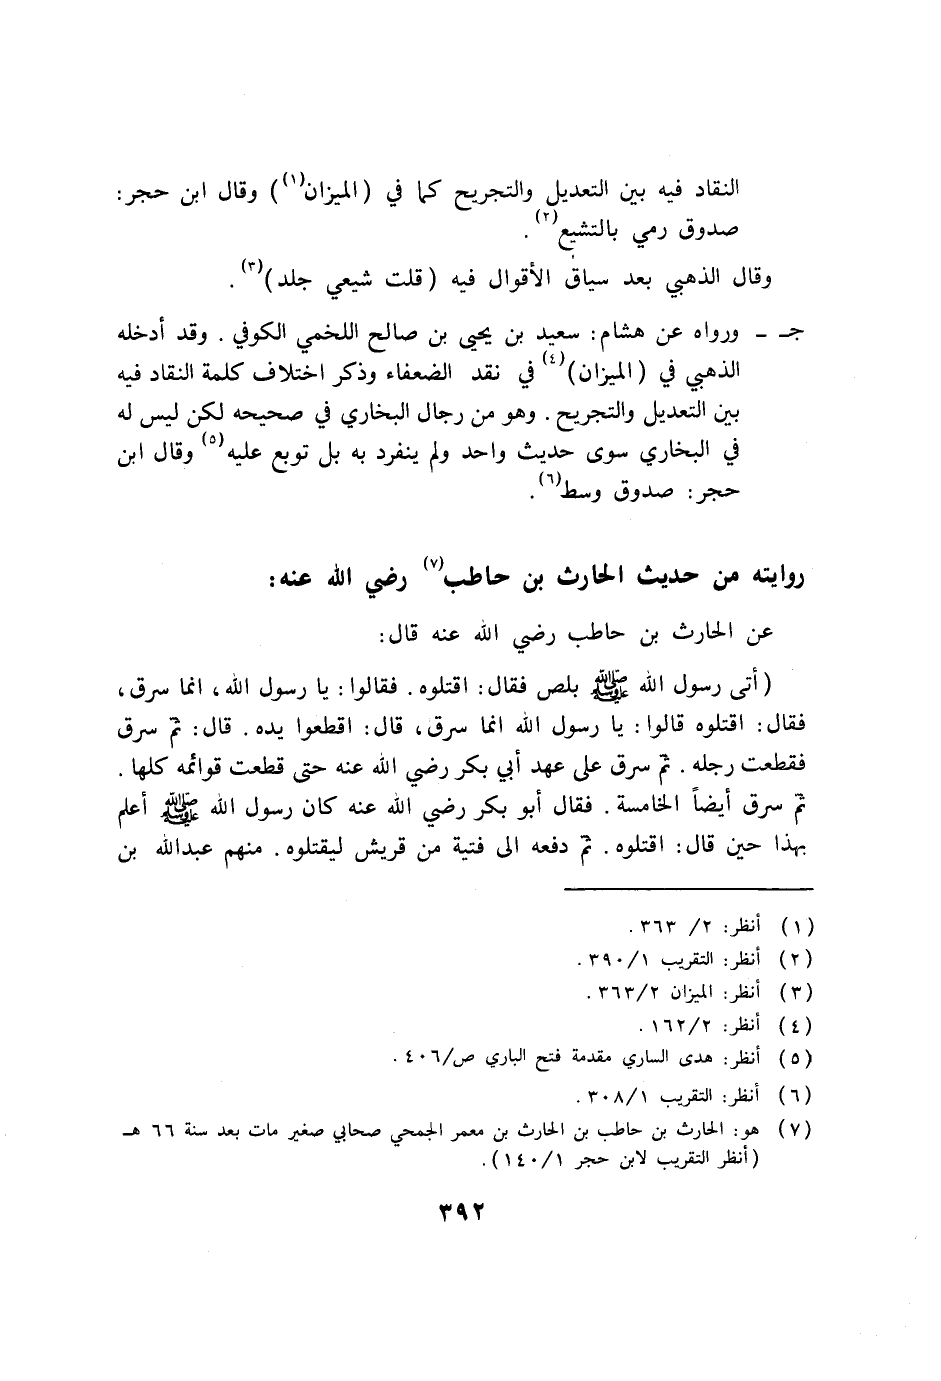 النقاد فيه بين التعديل والتجريح كما في (الميزان(١)) وقال ابن حجر:
صدوق رمي بالتشيع(٢).
وقال الذهبي بعد سياق الأقوال فيه (قلت شيعي جلد)(٣).
جـ - ورواه عن هشام: سعيد بن يحيى بن صالح اللخمي الكوفي. وقد أدخله
الذهبي في (الميزان)(٤) في نقد الضعفاء وذكر اختلاف كلمة النقاد فيه
بين التعديل والتجريح. وهو من رجال البخاري في صحيحه لكن ليس له
في البخاري سوى حديث واحد ولم ينفرد به بل توبع عليه(٥) وقال ابن
حجر: صدوق وسط(٦).
روايته من حديث الحارث بن حاطب(٧) رضي الله عنه:
عن الحارث بن حاطب رضي الله عنه قال:
(أتى رسول الله ﷺ بلص فقال: اقتلوه. فقالوا: يا رسول الله، انما سرق،
فقال: اقتلوه قالوا: يا رسول الله انما سرق، قال: اقطعوا يده. قال: ثم سرق
فقطعت رجله. ثم سرق على عهد أبي بكر رضي الله عنه حتى قطعت قوائمه كلها.
ثم سرق أيضاً الخامسة. فقال أبو بكر رضي الله عنه كان رسول الله ﷺ أعلم
بهذا حين قال: اقتلوه. ثم دفعه الى فتية من قريش ليقتلوه. منهم عبدالله بن
(١) أنظر: ٢/ ٣٦٣.
(٢) أنظر: التقريب ٣٩٠/١.
(٣) أنظر: الميزان ٣٦٣/٢.
(٤) أنظر: ١٦٢/٢.
(٥) أنظر: هدى الساري مقدمة فتح الباري ص/٤٠٦.
(٦) أنظر: التقريب ٣٠٨/١.
(٧) هو: الحارث بن حاطب بن الحارث بن معمر الجمحي صحابي صغير مات بعد سنة ٦٦ هـ
(أنظر التقريب لابن حجر ١٤٠/١).
٣٩٢